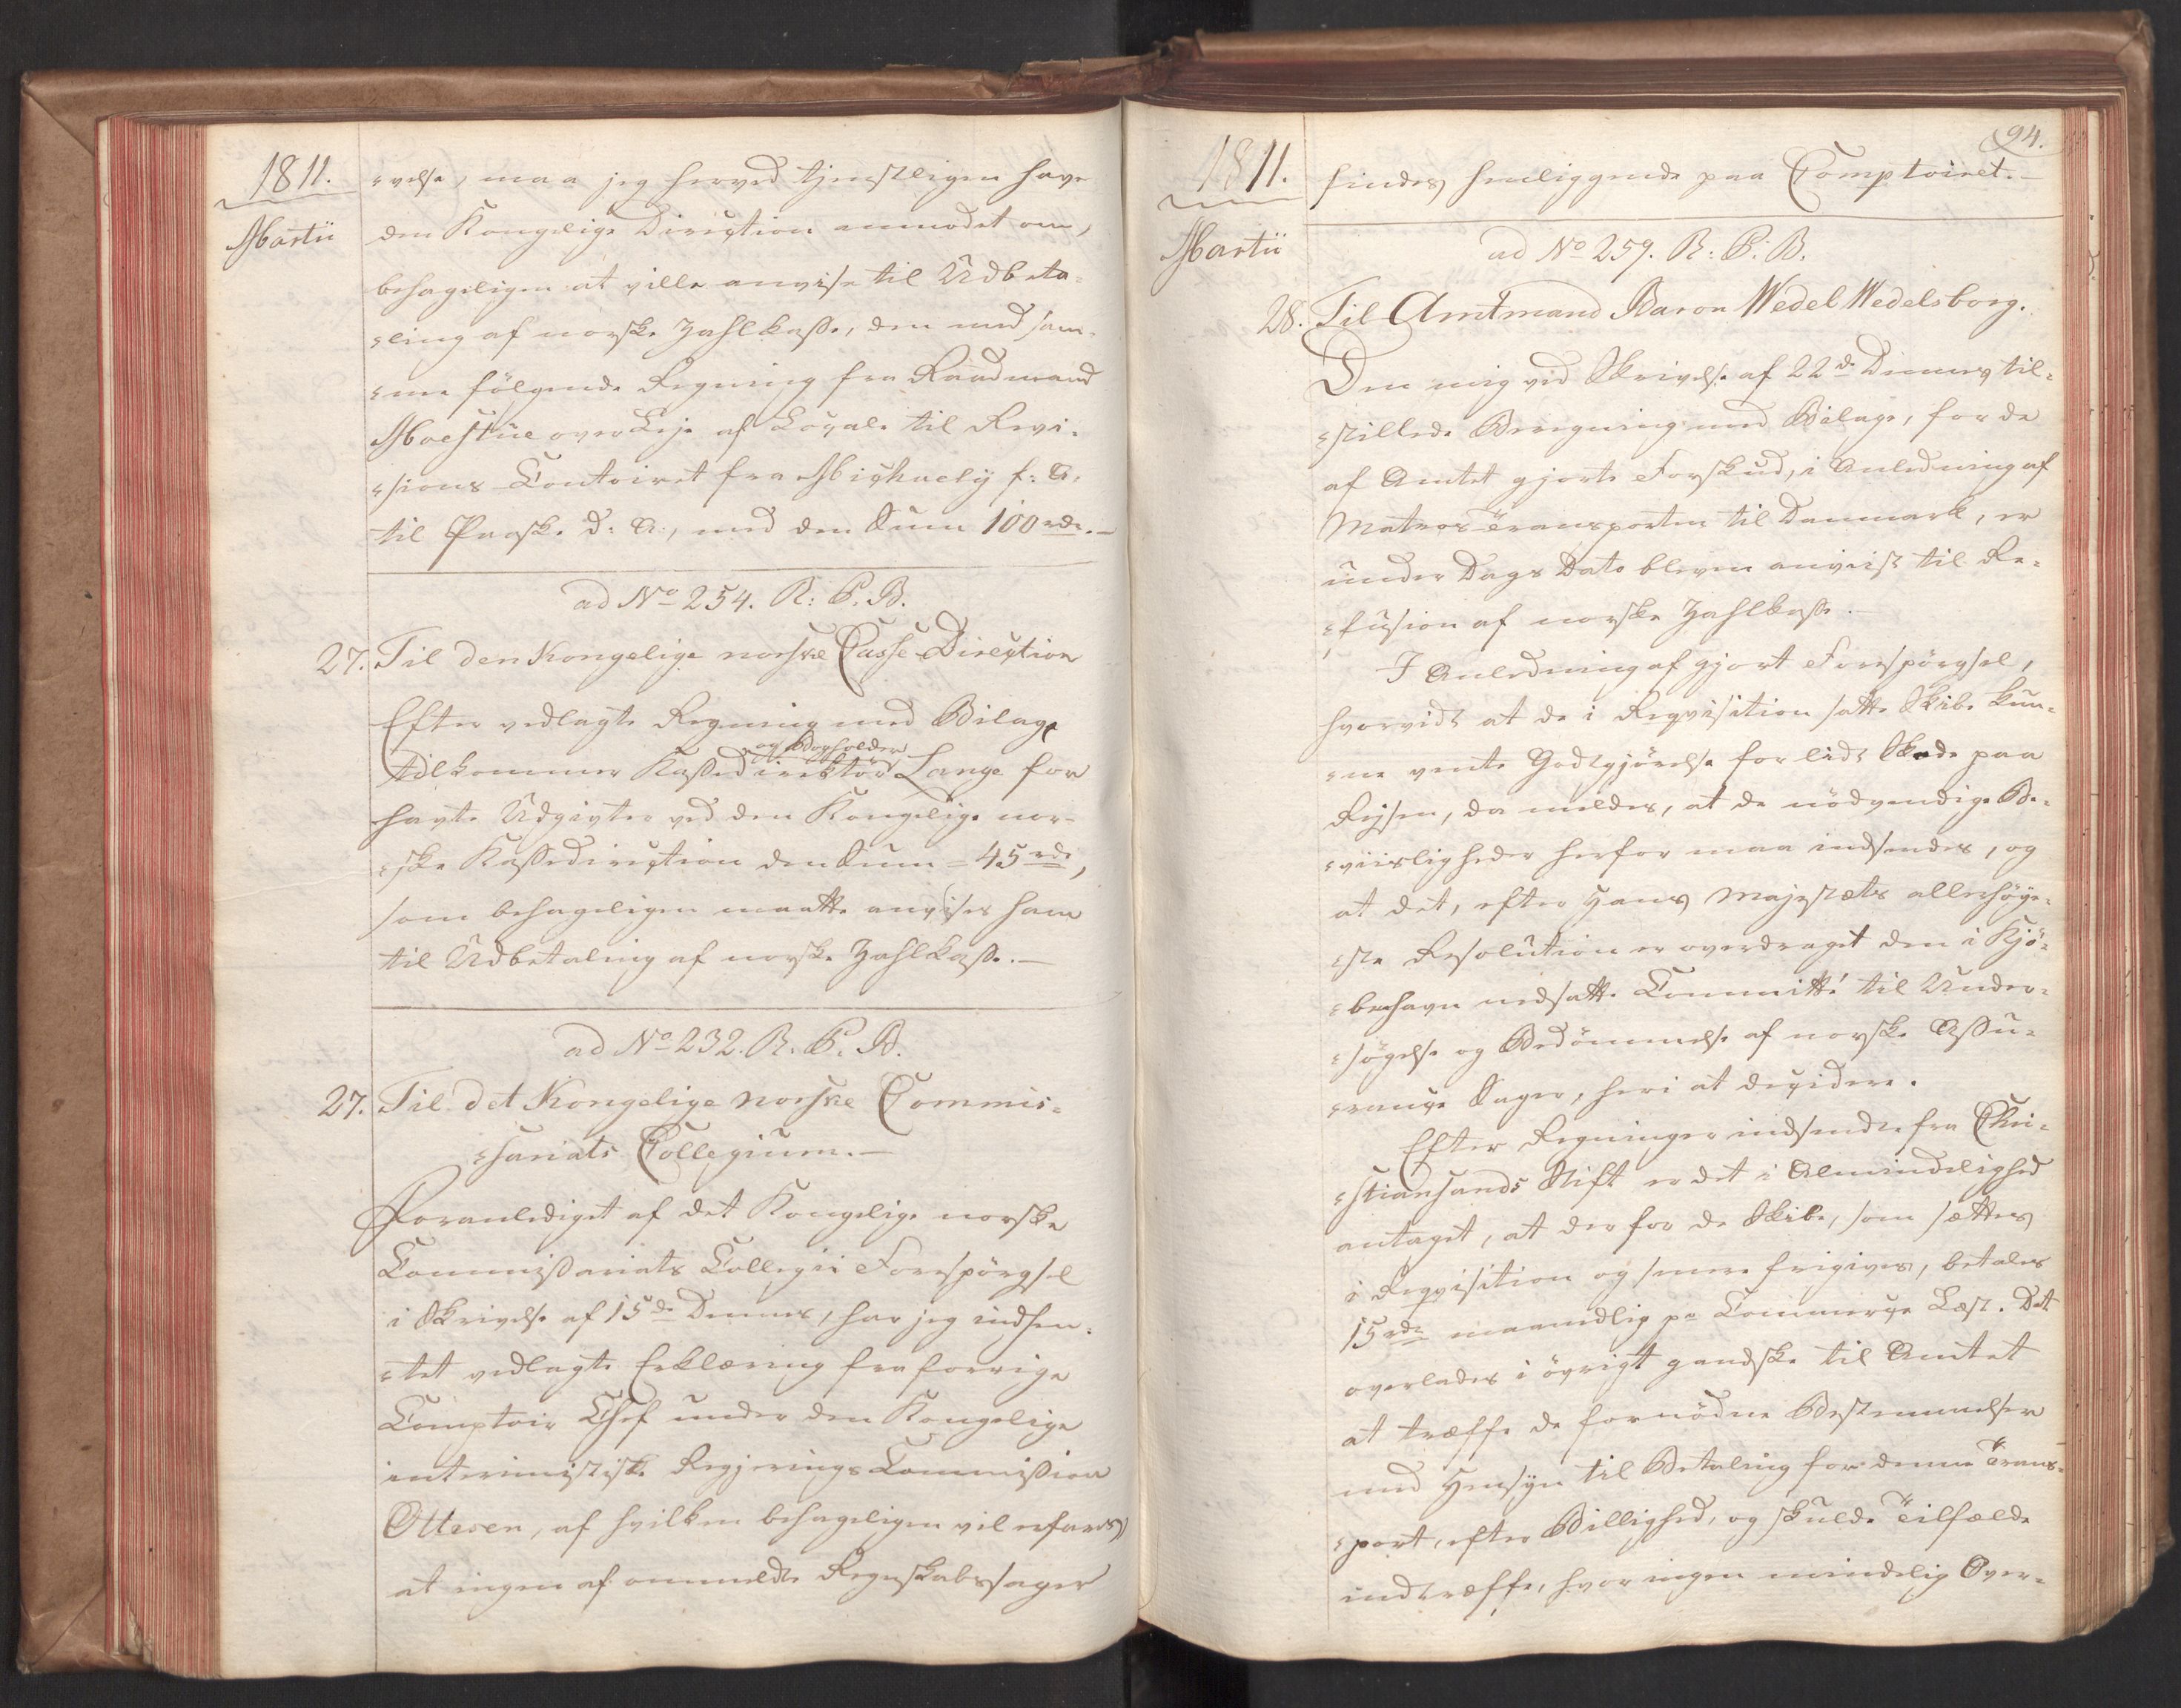 1811.
Martii
=velse, maa jeg herved tjenstligen have
den Kongelige Direction anmodet om,
behageligen at ville anvise til Udbeta-
=ling af norske Zahlkasse, den med sam-
=me fölgende Regning fra Raadmand
Moestue over Leje af Locale til Revi-
=sions-Contoiret fra Michaely f: A:
til Paaske d: A:, med den Sum 100 rd.–
ad No 254. R: P. B.
27. Til den Kongelige norske Casse-Direction
Efter vedlagte Regning med Bilage
og Bogholder
tilkommer Kassedirektör Lange for
havte Udgivter ved den Kongelige nor-
=ske Kassedirection den Sum – 45 rd,
som behageligen maatte anvises ham
til Udbetaling af norske Zahlkasse.–
ad No 232. R. P. B.
27. Til det Kongelige norske Commis=
=sariats Collegium.–
Foranlediget af det Kongelige norske
Commissariats Collegii Forespörgsel
i Skrivelse af 15de Dennes, har jeg indhen-
=tet vedlagte Erklæring fra forrige
Comptoir Chef under den Kongelige
interimistiske Regjerings Commission
Ottesen, af hvilken behageligen vil erfares,
at ingen af ommeldte Regnskabssager
94.
1811.
Martii
findes henliggende paa Comptoiret.–
ad No 259. R: P: B.
28. Til Amtmand Baron Wedel Wedelsborg.
Den mig ved Skrivelse af 22de Dennes til=
=stillede Beregning med Bilage, for de
af Amtet gjorte Forskud, i Anledning af
Matros Transporten til Danmark, er
under Dags Dato bleven anviist til Re-
=fusion af norske Zahlkasse.–
I Anledning af gjort Forespörgsel,
hvorvidt at de i Reqvisition satte Skibe kun-
=ne vente Godtgjörelse for lidt Skade paa
Rejsen, da meldes, at de nödvendige Be-
=viisligheder herfor maa indsendes, og
at det, efter Hans Majestæts allerhöye-
=ste Resolution er overdraget den i Kjö-
=benhavn nedsatte Committé til Under-
=sögelse og Bedömmelse af norske Assu=
=rance Sager, heri at decidere.
Efter Regninger indsendte fra Chri-
=stiansands Stift er det i Almindelighed
antaget, at der for de Skibe, som sættes
i Reqvisition og senere frigives, betales
15 rd maanedlig pr Commerce Læst. Det
overlades i övrigt gandske til Amtet
at træffe de fornödne Bestemmelser
med Hensyn til Betaling for denne Trans-
=port, efter Billighed, og skulde Tilfælde
indtræffe, hvor ingen mindelig Over-